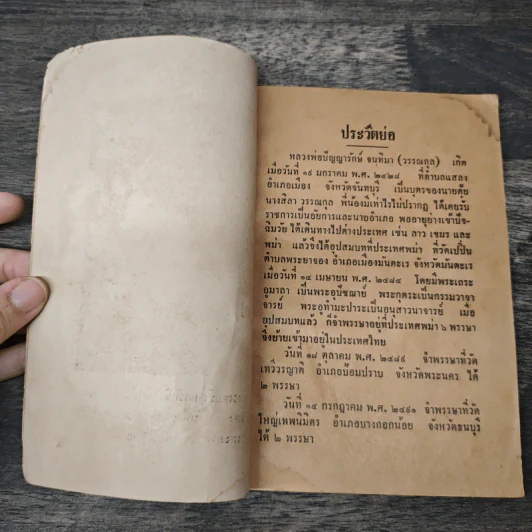 ประวัติย่อ
หลวงพ่อปัญญารักษ์ จนฺทิมา (วรรณกุล) เกิด
เมื่อวันที่ ๑๙ มกราคม พ.ศ. ๒๔๒๘ ที่ตำบลแสลง
อำเภอเมือง จังหวัดจันทบุรี เป็นบุตรของนายตุ้ย
นางสิลา วรรณกุล พี่น้องมีเท่าไรไม่ปรากฏ ได้เคยรับ
ราชการเป็นอัยการและนายอำเภอ พออายุย่างเข้าปัจ-
ฉิมวัย ได้เดินทางไปต่างประเทศ เช่น ลาว เขมร และ
พม่า แล้วจึงได้อุปสมบทที่ประเทศพม่า ที่วัดเปปิ่น
ตำบลพระยาจอง อำเภอเมืองมันตะเร จังหวัดมันตะเร
เมื่อวันที่ ๑๔ เมษายน พ.ศ. ๒๔๘๔ โดยมีพระเถระ
อูมาลา เป็นพระอุปัชฌาย์ พระกุตระเป็นกรรมวาจา
จารย์ พระอูท่ามะปาระเป็นอนุสาวนาจารย์ เมื่อ
อุปสมบทแล้ว ก็จำพรรษาอยู่ที่ประเทศพม่า ๖ พรรษา
จึงย้ายเข้ามาอยู่ในประเทศไทย
วันที่ ๑๘ ตุลาคม พ.ศ. ๒๔๘๙ จำพรรษาที่วัด
เทวีวรญาติ อำเภอป้อมปราบ จังหวัดพระนคร ได้
๒ พรรษา
วันที่ ๑๔ กรกฎาคม พ.ศ. ๒๔๙๑ จำพรรษาที่วัด
ใหญ่เทพนิมิตร อำเภอบางกอกน้อย จังหวัดธนบุรี
ได้ ๒ พรรษา